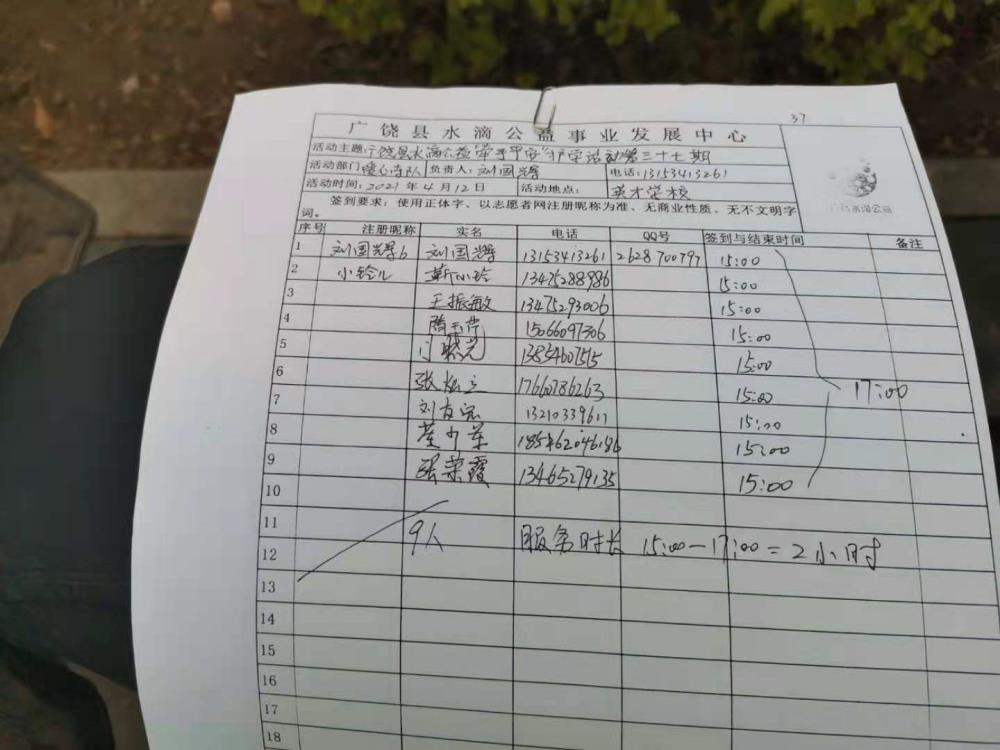 37
广饶县水滴公益事业发展中心
活动主题:广饶县水滴公益"牵手平安"护学活动第三十七期
活动部门 暖心车队 负责人: 刘国辉 电话:13153413261
活动时间: 2021年4月12日 活动地点: 英才学校
签到要求: 使用正体字、以志愿者网注册昵称为准、无商业性质、无不文明字
词。
广饶水滴公益
序号 注册昵称 实名 电话 QQ号 签到与结束时间 备注
1 刘国辉6 刘国辉 13153413261 2628700797 15:00
2 小铃儿 靳小玲 13475288986 15:00
3 王振敏 13475293006 15:00
4 15066097306 15:00
5 13854607515 15:00
6 张 17660786263 15:00 17:00
7 刘 13210339611 15:00
8 185462046186 15:00
9 张荣霞 13465279135 15:00
10
11
12 9人 服务时长 15:00-17:00=2小时
13
14
15
16
17
18